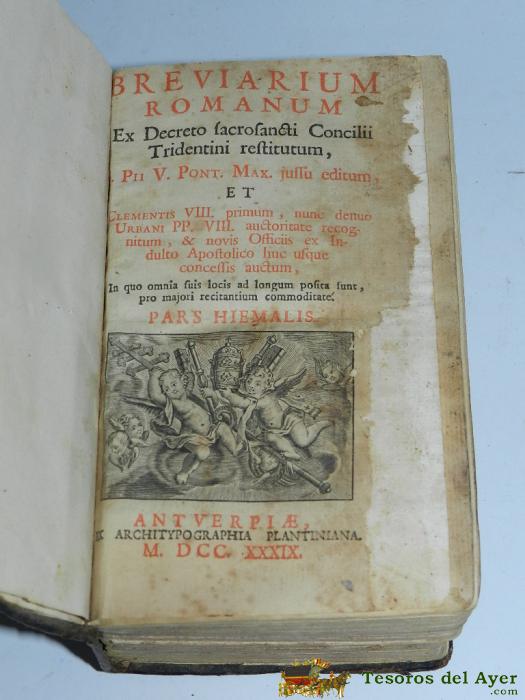 BREVIARIUM
ROMANUM
Ex Decreto sacrosancti Concilii
Tridentini restitutum,
PII V. PONT. MAX. jussu editum,
ET
CLEMENTIS VIII. primum, nunc denuo
URBANI PP. VIII. auctoritate recog-
nitum, & novis Officiis ex In-
dulto Apostolico huc usque
concessis auctum,
In quo omnia suis locis ad longum posita sunt,
pro majori recitantium commoditate.
PARS HIEMALIS.
ANTVERPIÆ,
EX ARCHITYPOGRAPHIA PLANTINIANA.
M. DCC. XXXIX.
Tesoros del Ayer
.com